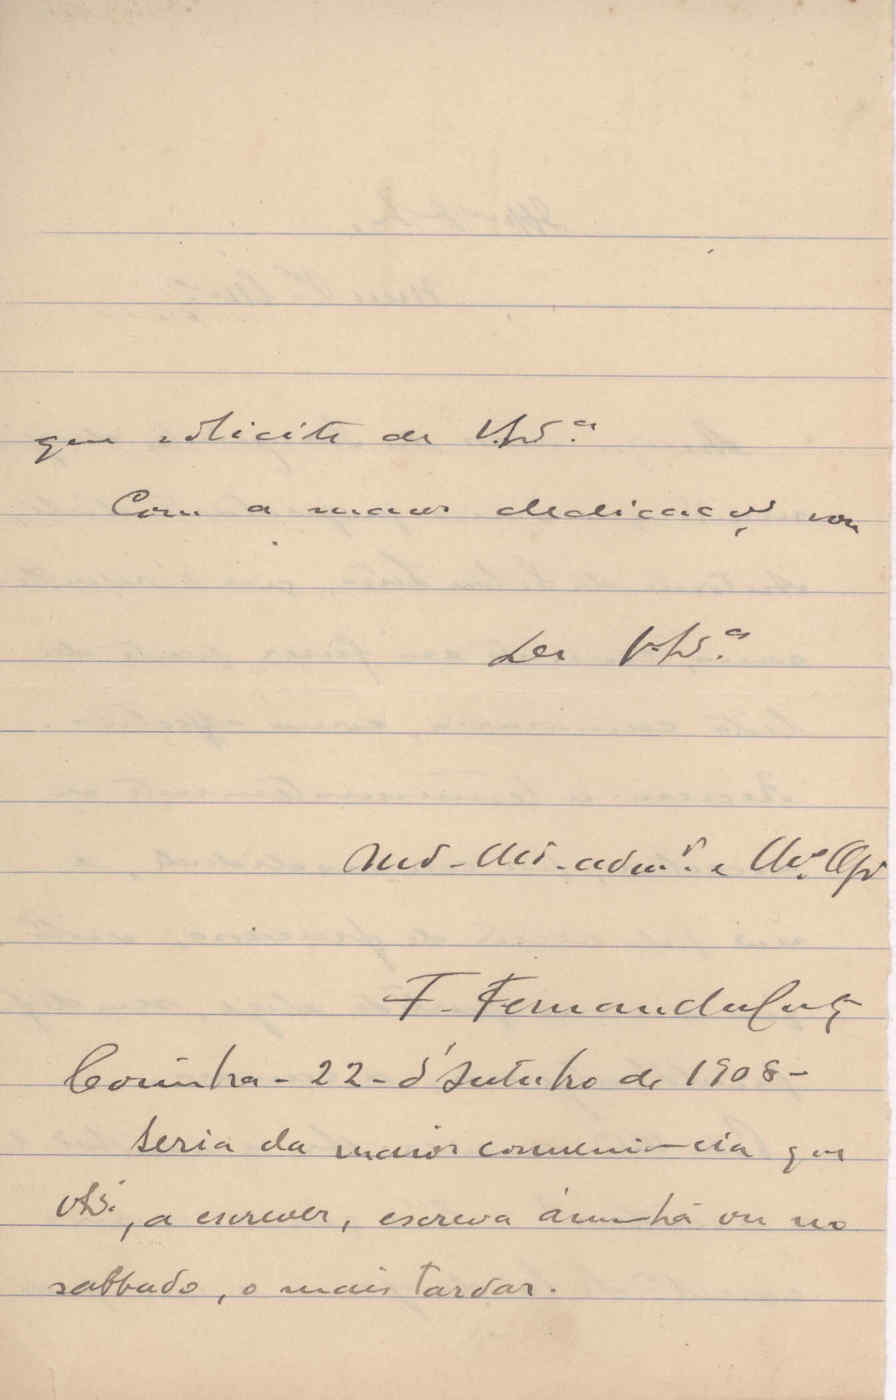 que solicite de V. Ex.ª
Com a maior dedicação sou
De V. Ex.ª
adm.ʳ e
F. Fernandes Costa
Coimbra - 22 - d'Outubro de 1908 -
Seria da maior conveniencia que
V. Ex.ª, a escrever, escreva ámanhã ou no
sabbado, o mais tardar.